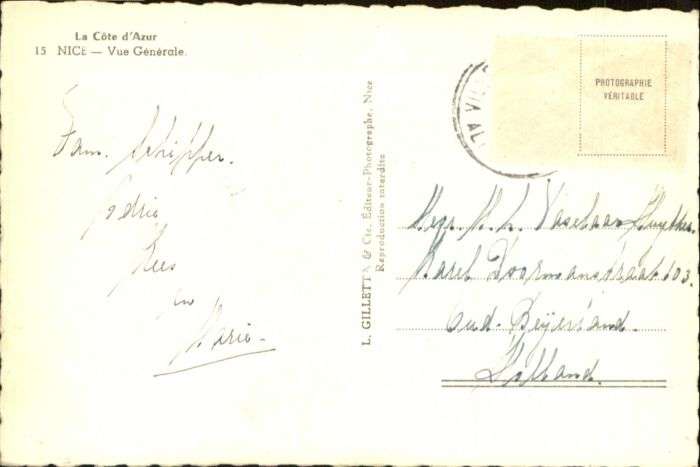 La Côte d'Azur
15 NICE — Vue Générale.
PHOTOGRAPHIE
VÉRITABLE
Fam. Schipper.
Kees
en
Mario
L. GILLETTA & Cie, Éditeur-Photographe, Nice
Reproduction interdite
Karel Doormanstraat 103.
Oud-Beijerland.
Holland.